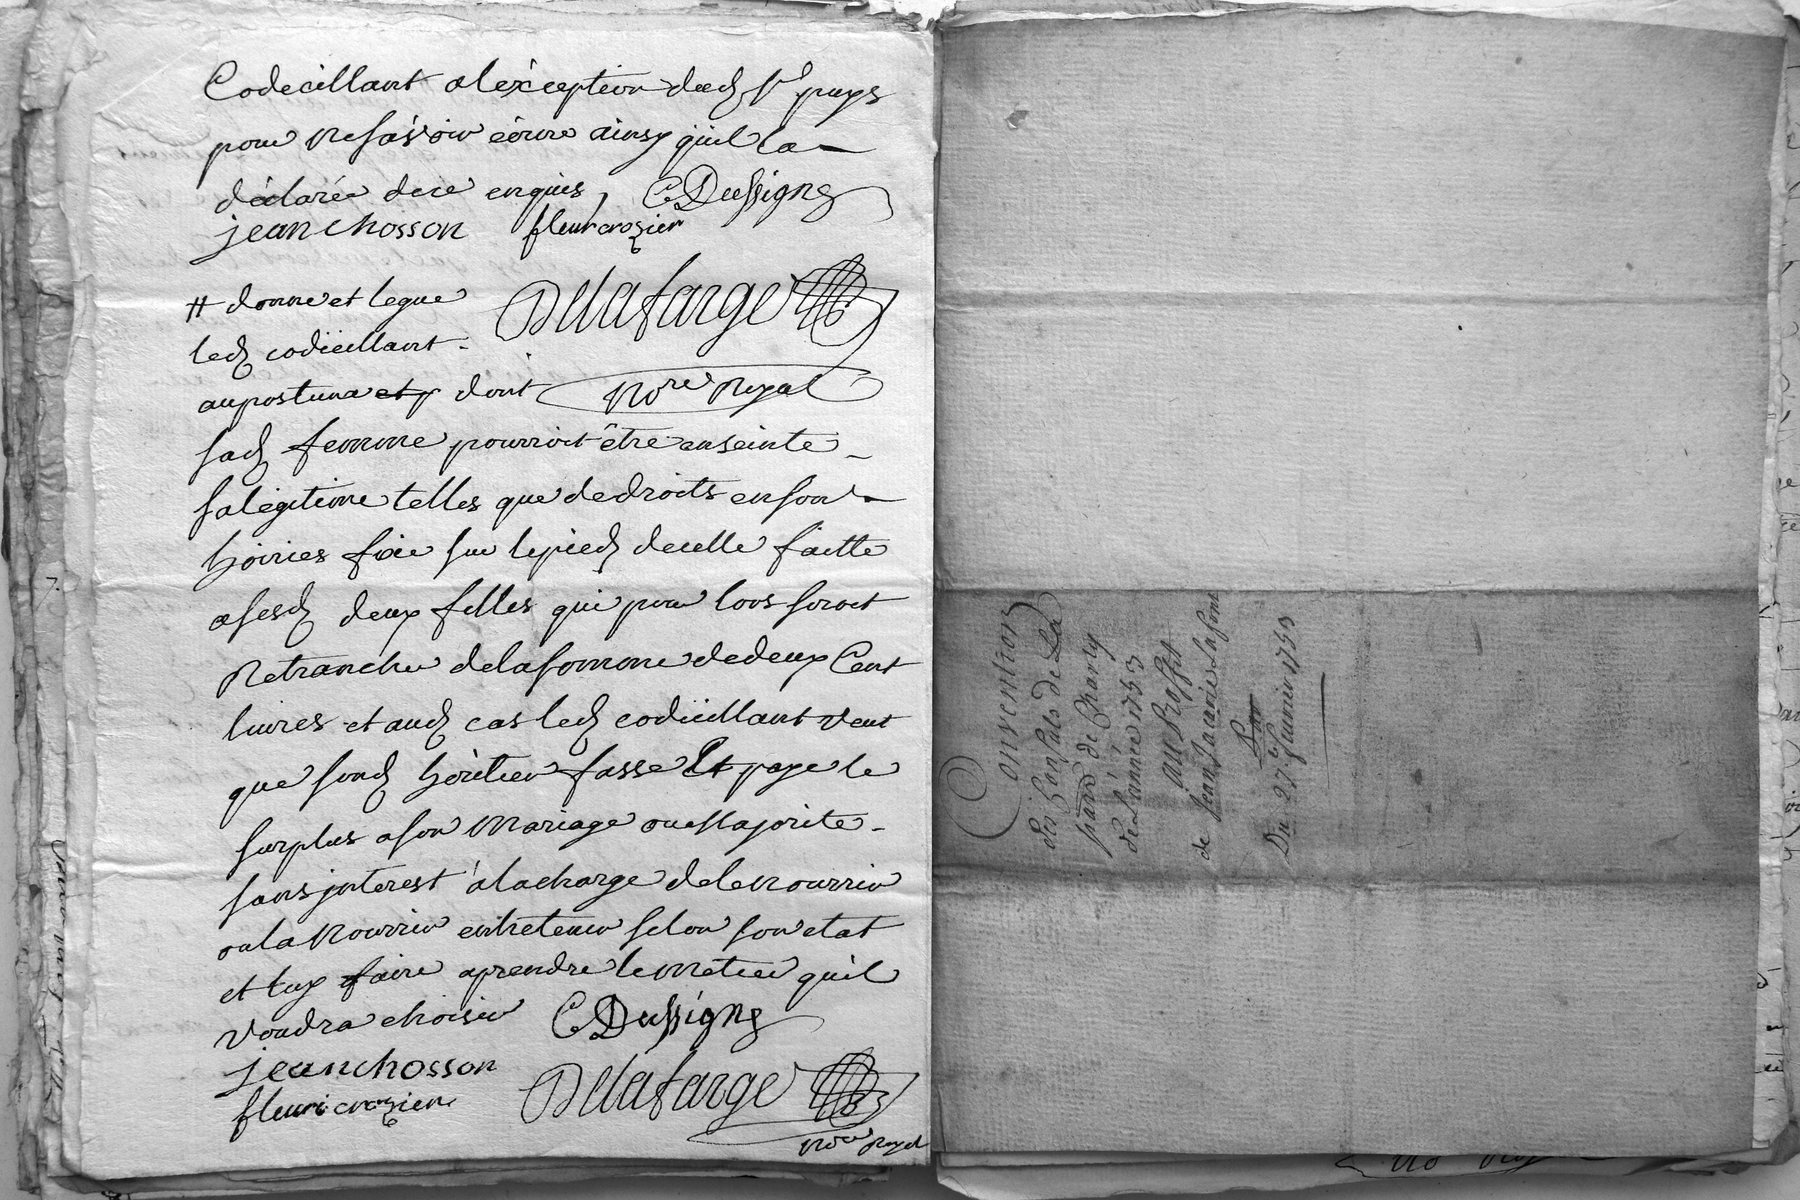 Codecillant alexception dud Sr puys
pour ne sávoir ecrire ainsy quil la
déclarée dece enquis, C Dussigne
jean chosson fleuri crozier
# donne et legue Delafarge
led codicillant
au postume et dont Nore Royal
sad femme pourroit être enseinte
sa légitime telles que de droits en son
hoiries fixée sur le pied de celle faitte
a sesd deux filles qui pour lors seroit
Retranchee de la somme de deux Cent
livres et aud cas led codicillant veut
que sond héritier fasse Et paye le
surplus a son mariage ou Majorite
sans jnterest à la charge de le nourrir
ou la nourrir entretenir selon son etat
et luy faire aprendre le metier quil
voudra choisir C Dussigne
jean chosson
fleuri crozier Delafarge
Nore Royal
Convention
des Consuls de La
par de Charly
de Lannée 1753
au Proffit
de Jean Jacarie Lafont
Du 27 Janvier 1753